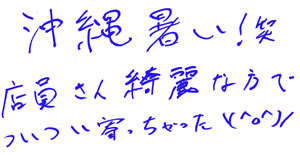 沖縄暑い!笑
店員さん綺麗な方で
ついつい寄っちゃった\(^o^)/